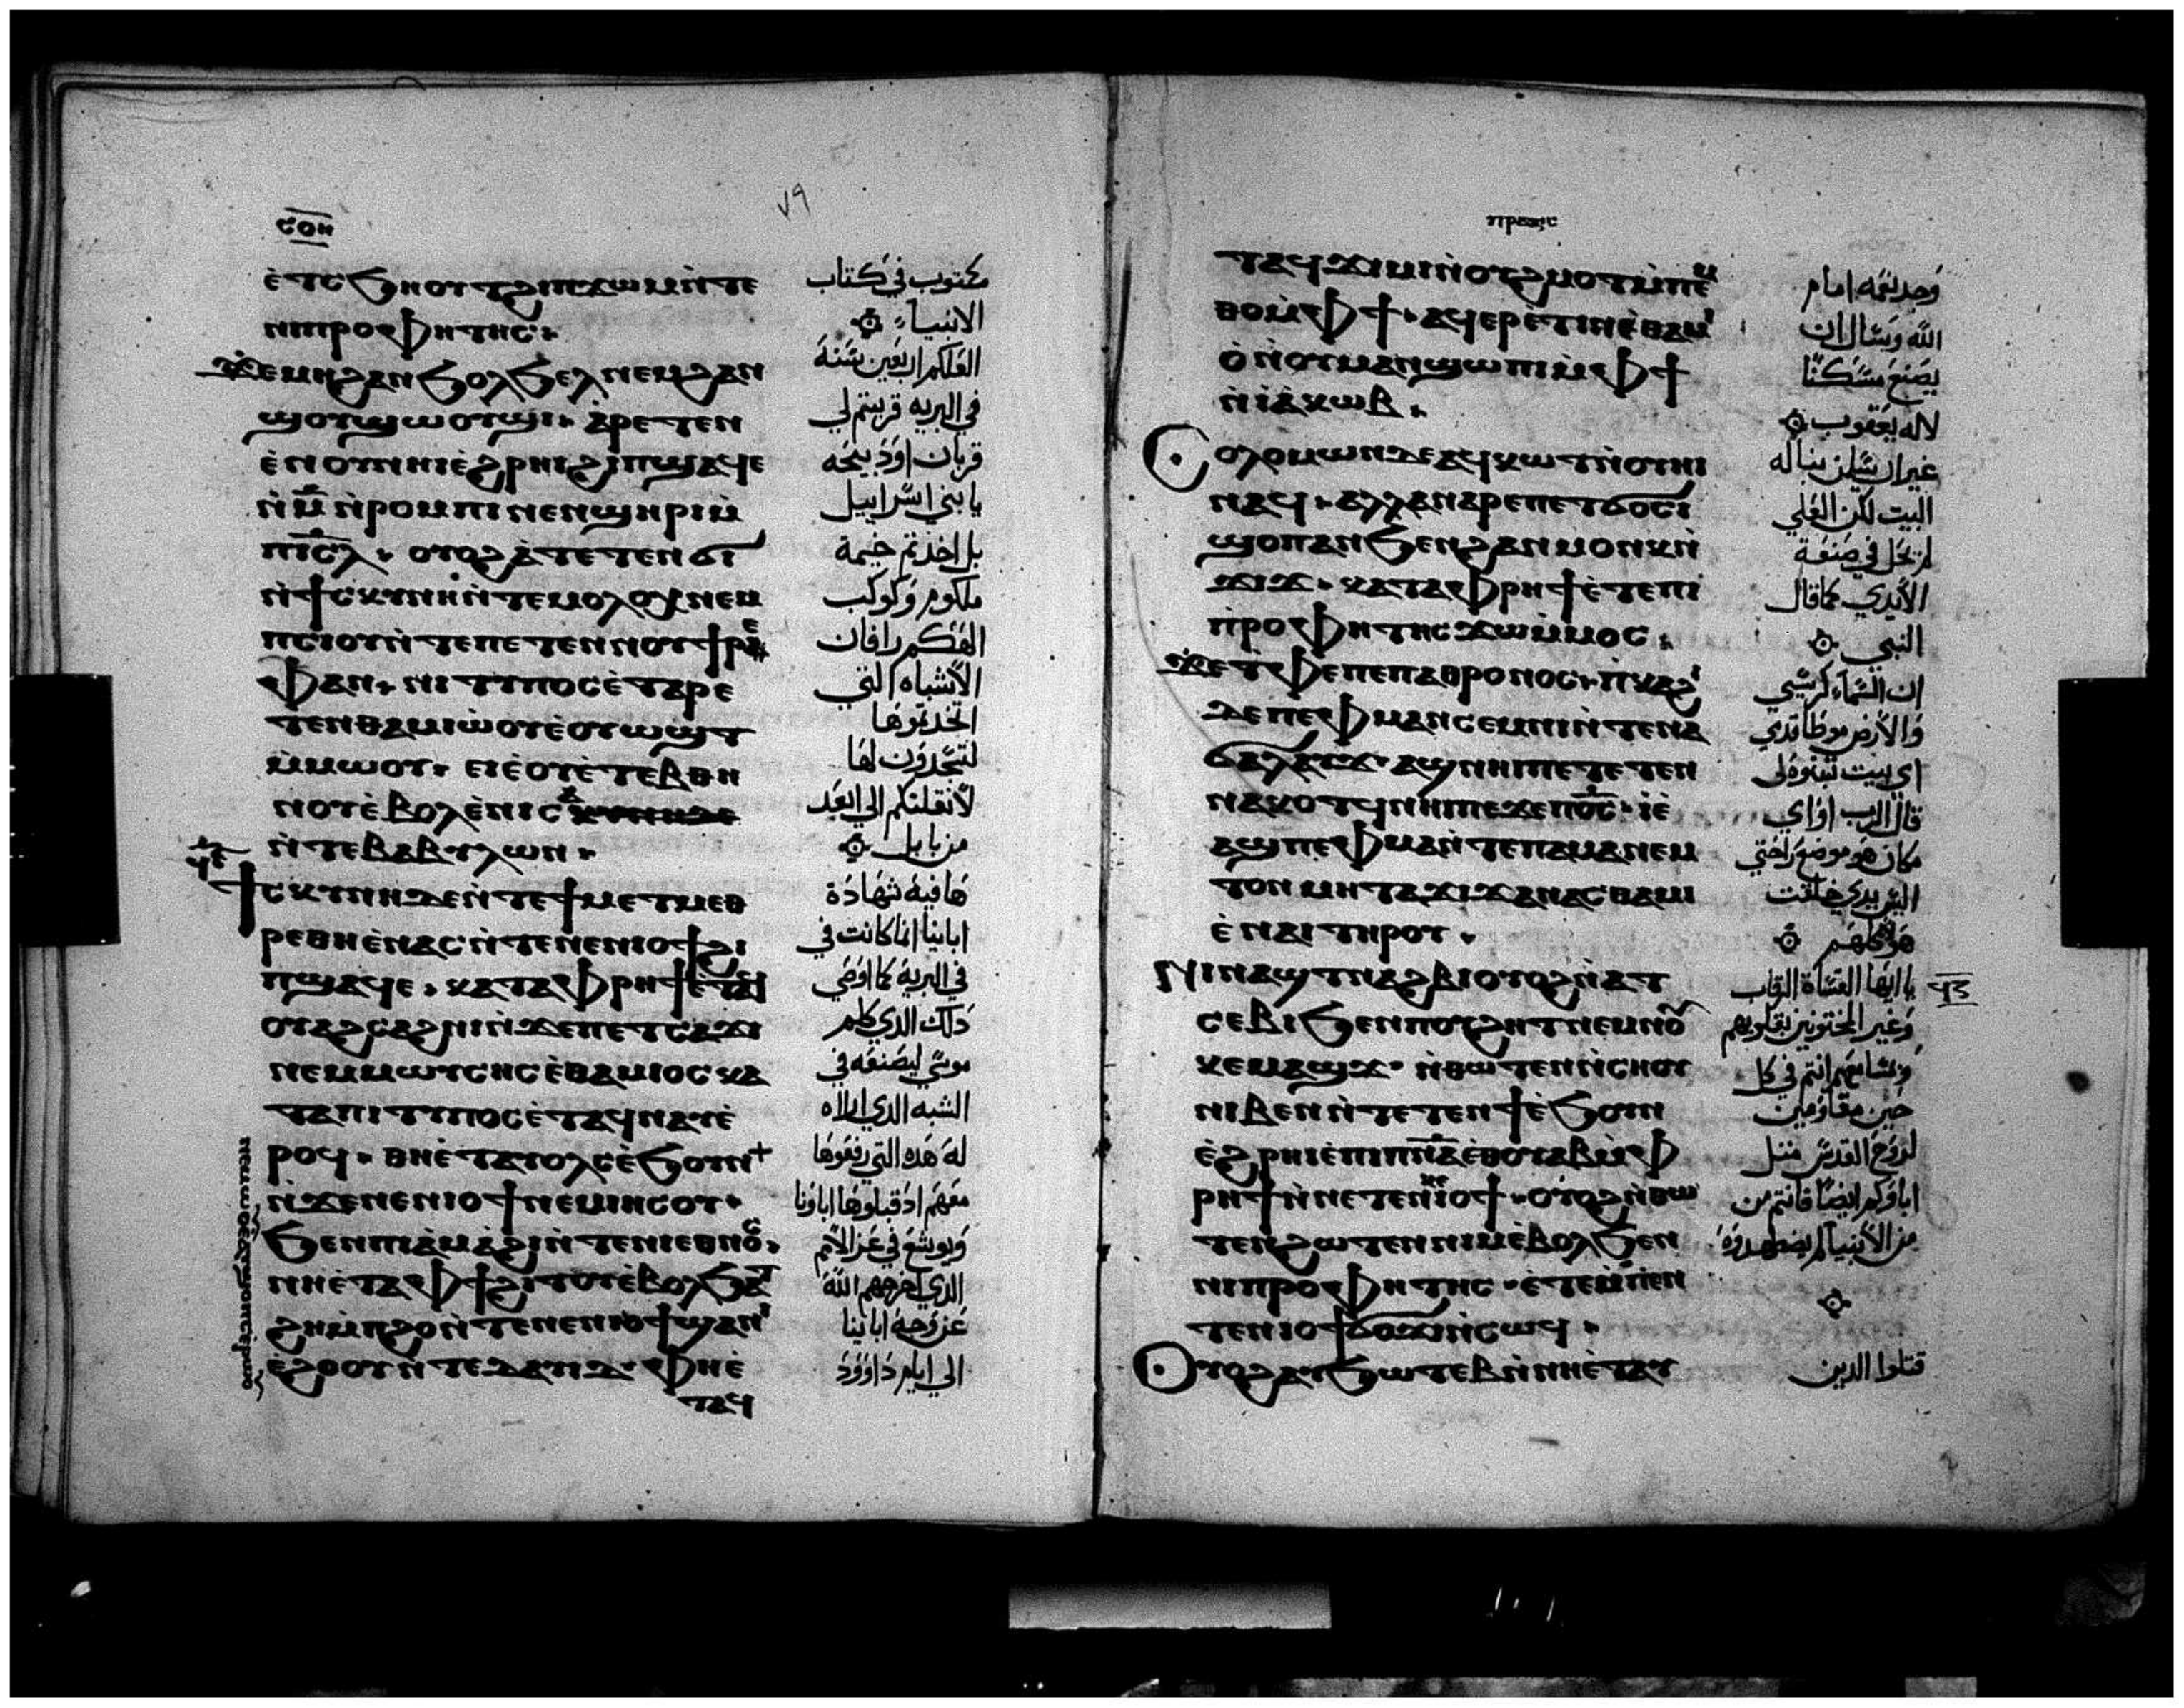 ٧٩
ⲉ̀ⲧⲥϧⲏⲟⲩⲧϩⲓⲡϫⲱⲙⲛ̀ⲧⲉ
ⲛⲓⲡⲣⲟⲫⲏⲧⲏⲥ
ϫⲉⲙⲏϩⲁⲛϧⲟⲗϧⲉⲗⲛⲉⲙϩⲁⲛ
ϣⲟⲩϣⲱⲟⲩϣⲓ ⲁ̀ⲣⲉⲧⲉⲛ
ⲉ̀ⲛⲟⲩⲛⲏⲓⲉ̀ϩⲣⲏⲓϩⲓⲡϣⲁϥⲉ
ⲛ̀ⲙ̅ⲛ̀ⲣⲟⲙⲡⲓⲛⲉⲛϣⲏⲣⲓⲙ̀
ⲡⲓ̅ⲥ̅ⲗ ⲟⲩⲟϩⲁ̀ⲧⲉⲧⲉⲛϭⲓ
ⲛ̀ϯⲥⲕⲩⲛⲏⲛ̀ⲧⲉⲙⲟⲗⲟⲭⲛⲉⲙ
ⲡⲥⲓⲟⲩⲛ̀ⲧⲉⲡⲉⲧⲉⲛⲛⲟⲩϯⲣⲉ
ⲫⲁⲛ ⲛⲓⲧⲩⲡⲟⲥⲉ̀ⲧⲁⲣⲉ
ⲧⲉⲛⲑⲁⲙⲓⲱ̀ⲟⲩⲉ̀ⲟⲩⲱϣⲧ
ⲙ̀ⲙⲱⲟⲩ ⲉⲓⲉ̀ⲟⲩⲉ̀ⲧⲉⲃⲑⲏ
ⲛⲟⲩⲉ̀ⲃⲟⲗⲉ̀ⲛⲓⲥⲁ
ⲛ̀ⲧⲉⲃⲁⲃⲩⲗⲱⲛ
ϯⲥⲕⲩⲛⲏⲇⲉⲛ̀ⲧⲉϯⲙⲉⲧⲙⲉⲑ
ⲣⲉⲑⲛⲉ̀ⲛⲁⲥⲛ̀ⲧⲉⲛⲉⲛⲓⲟϯϩⲓ
ⲡϣⲁϥⲉ ⲕⲁⲧⲁⲫⲣⲏϯⲉ̀ⲧⲁϥ
ⲟⲩⲁϩⲥⲁϩⲛⲓⲛ̀ϫⲉⲡⲉⲧⲥⲁϫⲓ
ⲛⲉⲙⲙⲱⲩⲥⲏⲥⲉ̀ⲑⲁⲙⲓⲟⲥⲕⲁ
ⲧⲁⲡⲓⲧⲩⲡⲟⲥⲉ̀ⲧⲁϥⲛⲁⲩⲉ̀
ⲣⲟϥ ⲑⲏⲉ̀ⲧⲁⲩⲟⲗⲥⲉ̀ϧⲟⲩⲛ
ⲛ̀ϫⲉⲛⲉⲛⲓⲟϯⲛⲉⲙⲓⲏⲥⲟⲩ
ϧⲉⲛⲡⲓⲁ̀ⲙⲁ̀ϩⲓⲛ̀ⲧⲉⲛⲓⲉⲑⲛⲟⲥ
ⲛⲏⲉ̀ⲧⲁⲫϯϩⲓⲧⲟⲩⲉ̀ⲃⲟⲗϧⲁⲧ
ϩⲏⲙ̀ⲡϩⲟⲛ̀ⲧⲉⲛⲉⲛⲓⲟϯϣⲁⲛⲓ
ⲉ̀ϩⲟⲟⲩⲛ̀ⲧⲉⲇⲁⲩⲓⲇ ⲫⲏⲉ̀
ⲧⲁϥ
مكتوب في كتاب
الانبياء
العلكم اربعين سنة
في البريه قربتم لي
قربان او ذبيحه
يا بني اسراييل
بل اخذتم خيمة
ملكوم وكوكب
الهكم رافان
الاشباه التي
اتخدتموها
لتسجدون لها
لانقلنكم الي ابعد
من بابل
هافية شهادة
اباينا انما كانت في
في البرية كما اوصي
دلك الدي كلم
موسي ليصنعه في
الشبه الدي اراه
له هده التي رفعوها
معهم اد قبلوها اباونا
ويوشع في عز الامم
الدي اخرجهم الله
عن وجه اباينا
الي ايام داوود
ⲡⲣⲁⲝⲥ
ⲧⲁϥϫⲓⲙⲓⲛ̀ⲟⲩϩⲙⲟⲧⲙ̀ⲡⲉⲙ
ⲑⲟⲙ̀ⲫϯ ⲁϥⲉⲣⲉ̀ⲧⲓⲛⲉ̀ⲑⲁⲙⲓ
ⲟ̀ⲛ̀ⲟⲩⲙⲁⲛϣⲱⲡⲓⲙ̀ⲫϯ
ⲛ̀ⲓⲁ̀ⲕⲱⲃ
ⲥⲟⲗⲟⲙⲱⲛⲇⲉⲁϥⲕⲱⲧⲛ̀ⲟⲩⲏⲓ
ⲛⲁϥ ⲁⲗⲗⲁⲛⲁⲣⲉⲡⲉⲧϭⲟⲥⲓ
ϣⲟⲡⲁⲛϧⲉⲛϩⲁⲛⲙⲟⲛⲕⲛ̀
ϫⲓϫ ⲕⲁⲧⲁⲫⲣⲏϯⲉ̀ⲧⲉⲡⲓ
ⲡ̀ⲣⲟⲫⲏⲧⲏⲥϫⲱⲙ̀ⲙⲟⲥ
ϫⲉⲧ̀ⲫⲉⲡⲉⲡⲁⲑⲣⲟⲛⲟⲥ ⲡ̀ⲕⲁϩⲓ
ⲇⲉⲡⲉⲫⲙⲁⲛⲥⲉⲙⲛⲓⲛ̀ⲧⲉⲛⲁ
ϭⲁⲗⲁⲩϫ ⲁϣⲛⲏⲓⲡⲉⲧⲉⲧⲉⲛ
ⲛⲁⲕⲟⲧϥⲛⲏⲓⲡⲉϫⲉⲡⲟ̅ⲥ̅ ⲓⲉ̀
ⲁϣⲡⲉⲫⲙⲁⲛ̀ⲧⲉⲡⲁⲙⲁⲛⲉⲙ
ⲧⲟⲛ ⲙⲏⲧⲁϫⲓϫⲁⲛⲁⲥⲑⲁⲙⲓ
ⲉ̀ⲛⲁⲓⲧⲏⲣⲟⲩ
ⲛⲓⲛⲁϣⲧⲛⲁϩⲃⲓⲟⲩⲟϩⲛ̀ⲁⲧ
ⲥⲉⲃⲓϧⲉⲛⲡⲟⲩϩⲏⲧⲛⲉⲙⲛⲟⲩ
ⲕⲉⲙⲁϣϫ ⲛ̀ⲑⲱⲧⲉⲛⲛ̀ⲥⲛⲟⲩ
ⲛⲓⲃⲉⲛⲛ̀ⲧⲉⲧⲉⲛϯⲉ̀ϧⲟⲩⲛ
ⲉ̀ϩⲣⲏⲓⲉ̀ⲡⲓⲡⲛ̅ⲁ̅ⲉ̀ⲑⲟⲩⲁⲃⲙ̀ⲫ
ⲣⲏϯⲛ̀ⲛⲉⲧⲉⲛⲓⲟϯ ⲟⲩⲟϩⲛ̀ⲑⲱ
ⲧⲉⲛϩⲱⲧⲉⲛⲛⲓⲙⲉ̀ⲃⲟⲗϧⲉⲛ
ⲛⲓⲡⲣⲟⲫⲏⲧⲏⲥ ⲉ̀ⲧⲉⲙ̀ⲡⲉⲛ
ⲧⲉⲛⲓⲟϯϭⲟϫⲓⲛ̀ⲥⲱϥ
ⲟⲩⲟϩⲁⲩϧⲱⲧⲉⲃⲛ̀ⲛⲏⲉ̀ⲧⲁⲩ
وجد نعمه امام
الله وسال ان
يصنع مسكنا
لاله يعقوب
غير ان سليمن بنا له
البيت لكن العلي
لم يحل في صنعة
الايدي كما قال
النبي
ان السماء كرسي
والارض موطا قدمي
اي بيت تبنوه لي
قال الرب او اي
مكان هو موضع راحتي
اليس يدي خلقت
هولا كلهم
يا ايها القساة الرقاب
وغير المختونين بقلوبهم
ومسامعهم انتم في كل
حين مقاومين
لروح القدس متل
اباوكم ايضا فانتم من
من الانبيا لم يضطهدوه
قتلوا الدين